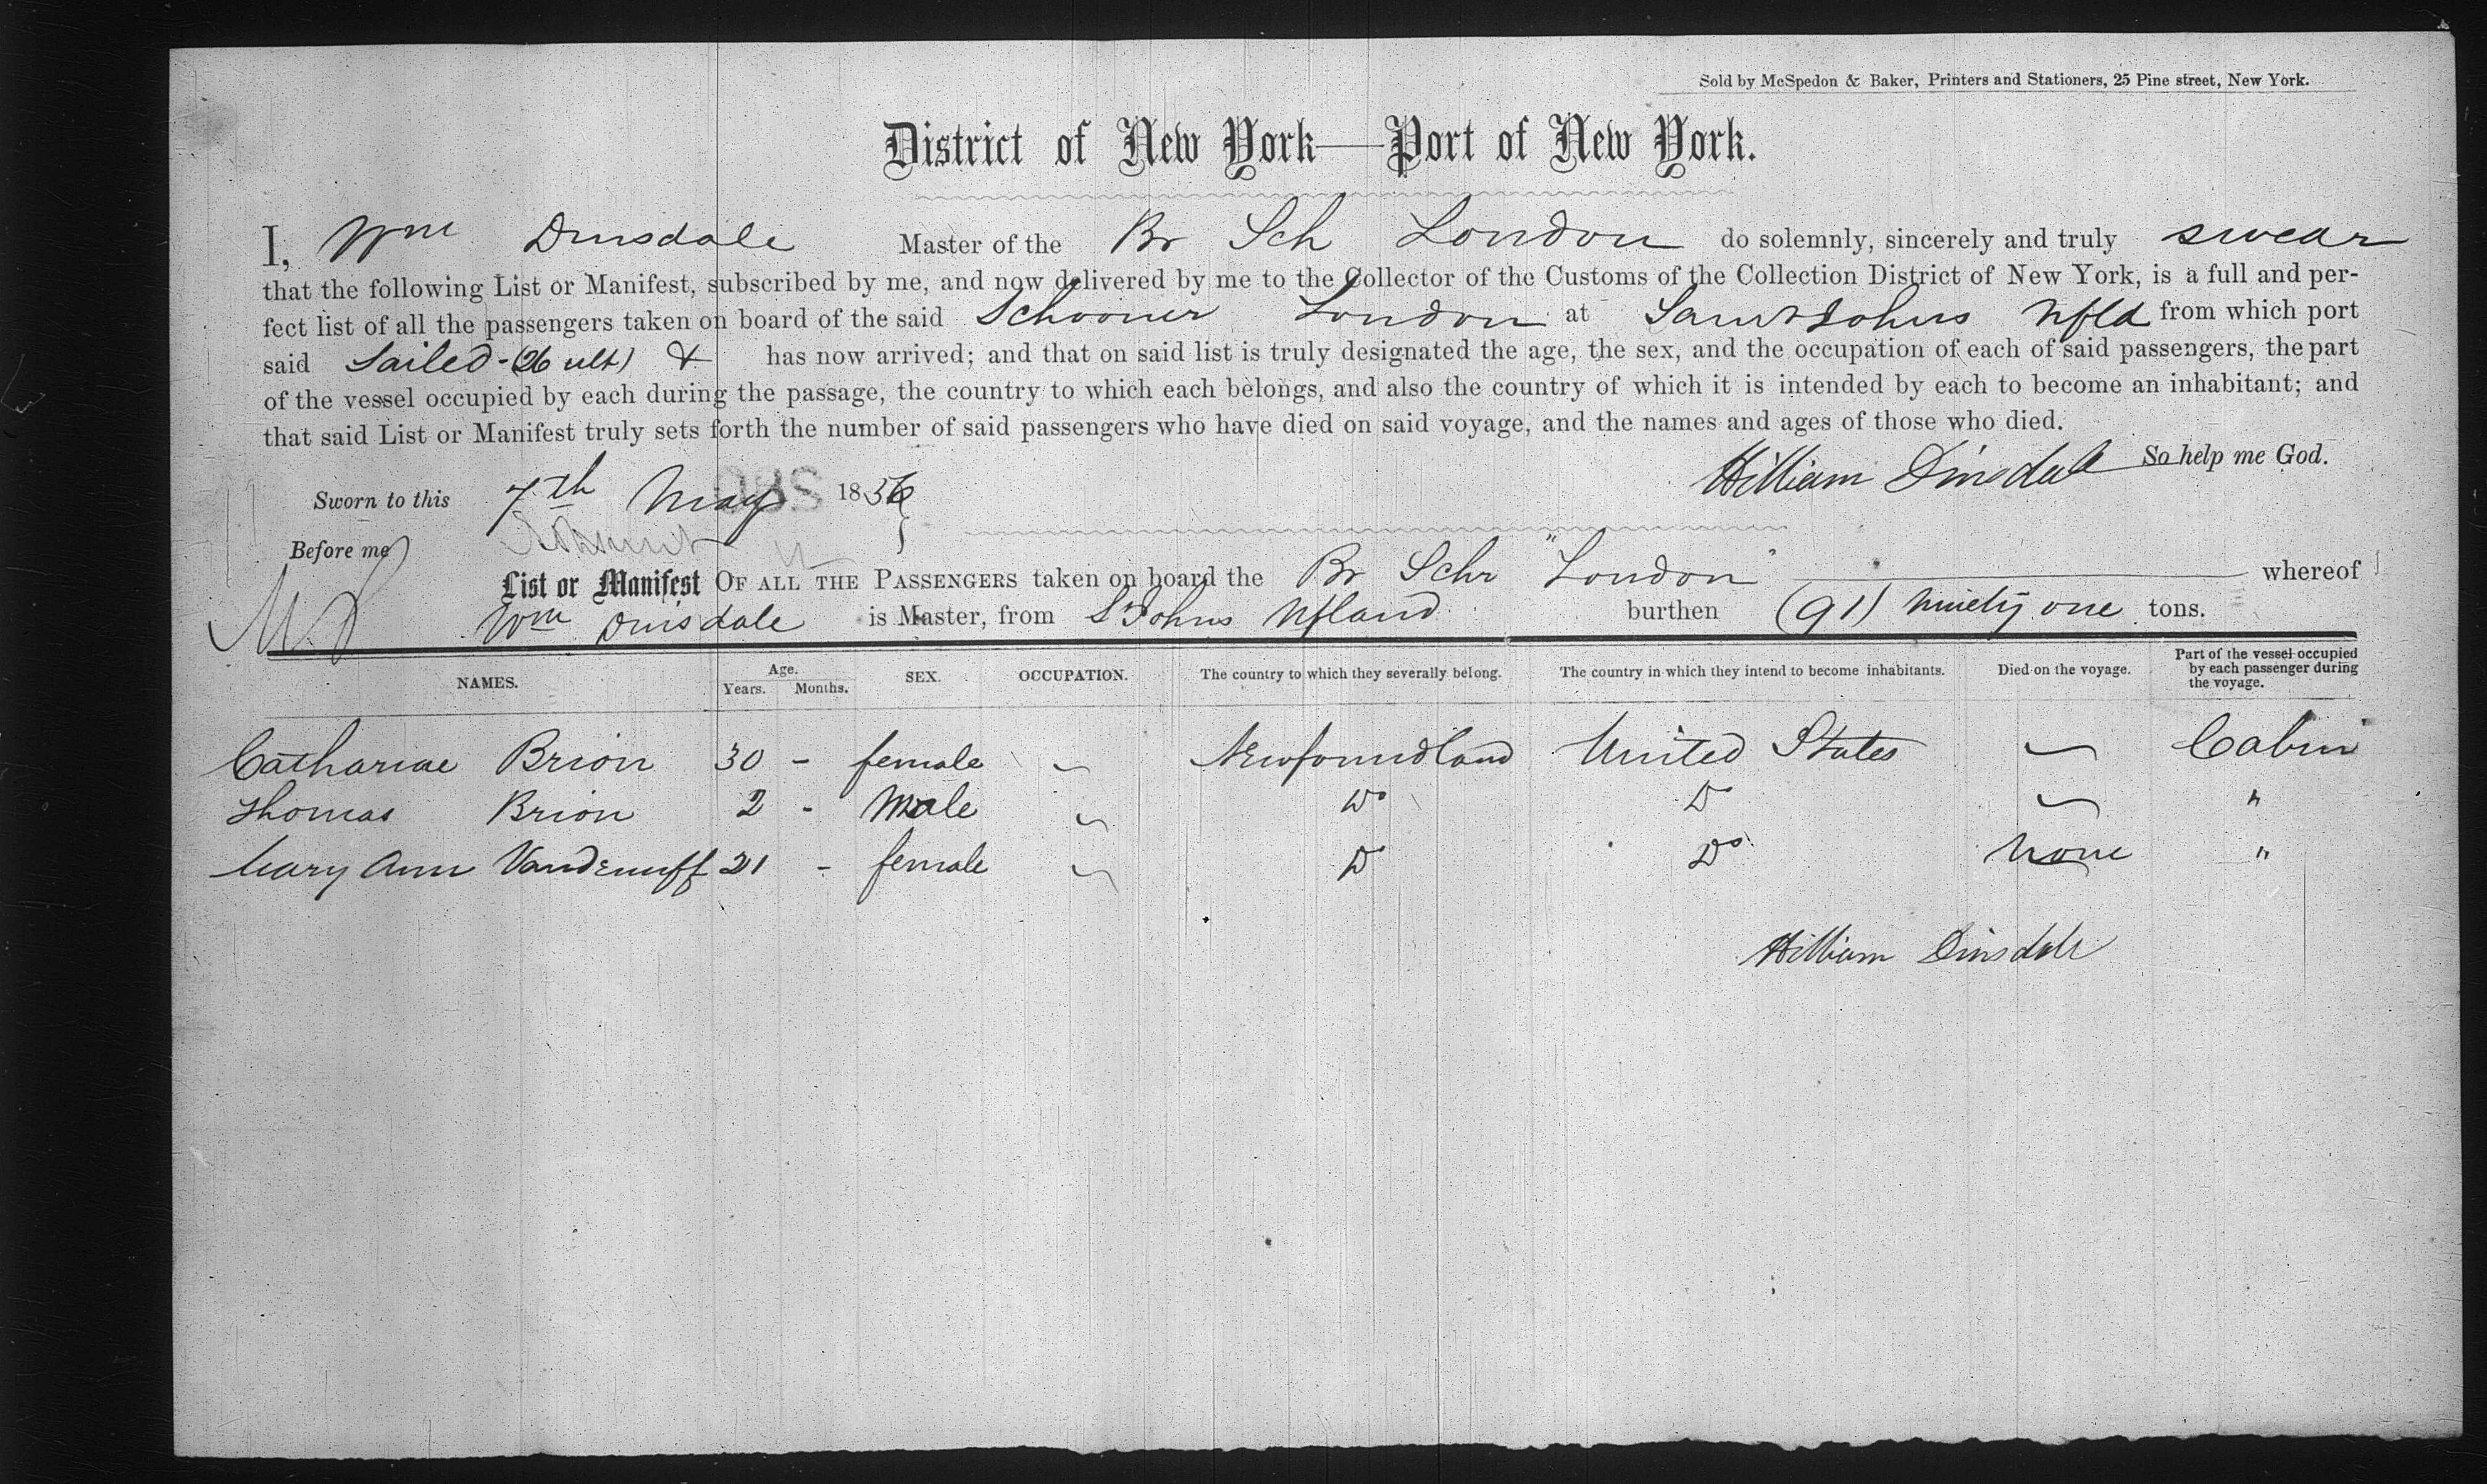 Sold by McSpedon & Baker, Printers and Stationers, 25 Pine street, New York.
District of New York—Port of New York.
I, Wm Dinsdale Master of the Br Sch London do solemnly, sincerely and truly swear
that the following List or Manifest, subscribed by me, and now delivered by me to the Collector of the Customs of the Collection District of New York, is a full and per-
fect list of all the passengers taken on board of the said Schooner London at Saint Johns Nfld from which port
said Sailed - (26 ult) & has now arrived; and that on said list is truly designated the age, the sex, and the occupation of each of said passengers, the part
of the vessel occupied by each during the passage, the country to which each belongs, and also the country of which it is intended by each to become an inhabitant; and
that said List or Manifest truly sets forth the number of said passengers who have died on said voyage, and the names and ages of those who died.
William Dinsdale So help me God.
Sworn to this 7th May 1856
Before me
List or Manifest OF ALL THE PASSENGERS taken on board the Br Schr "London" whereof
Wm Dinsdale is Master, from St Johns Nfland burthen (91) Ninety one tons.
NAMES. Age. Years. Months. SEX. OCCUPATION. The country to which they severally belong. The country in which they intend to become inhabitants. Died on the voyage. Part of the vessel occupied by each passenger during the voyage.
Catharine Brion 30 - female Newfoundland United States Cabin
Thomas Brion 2 - Male Do Do "
Mary Ann Vandenuff 21 - female Do Do None "
William Dinsdale